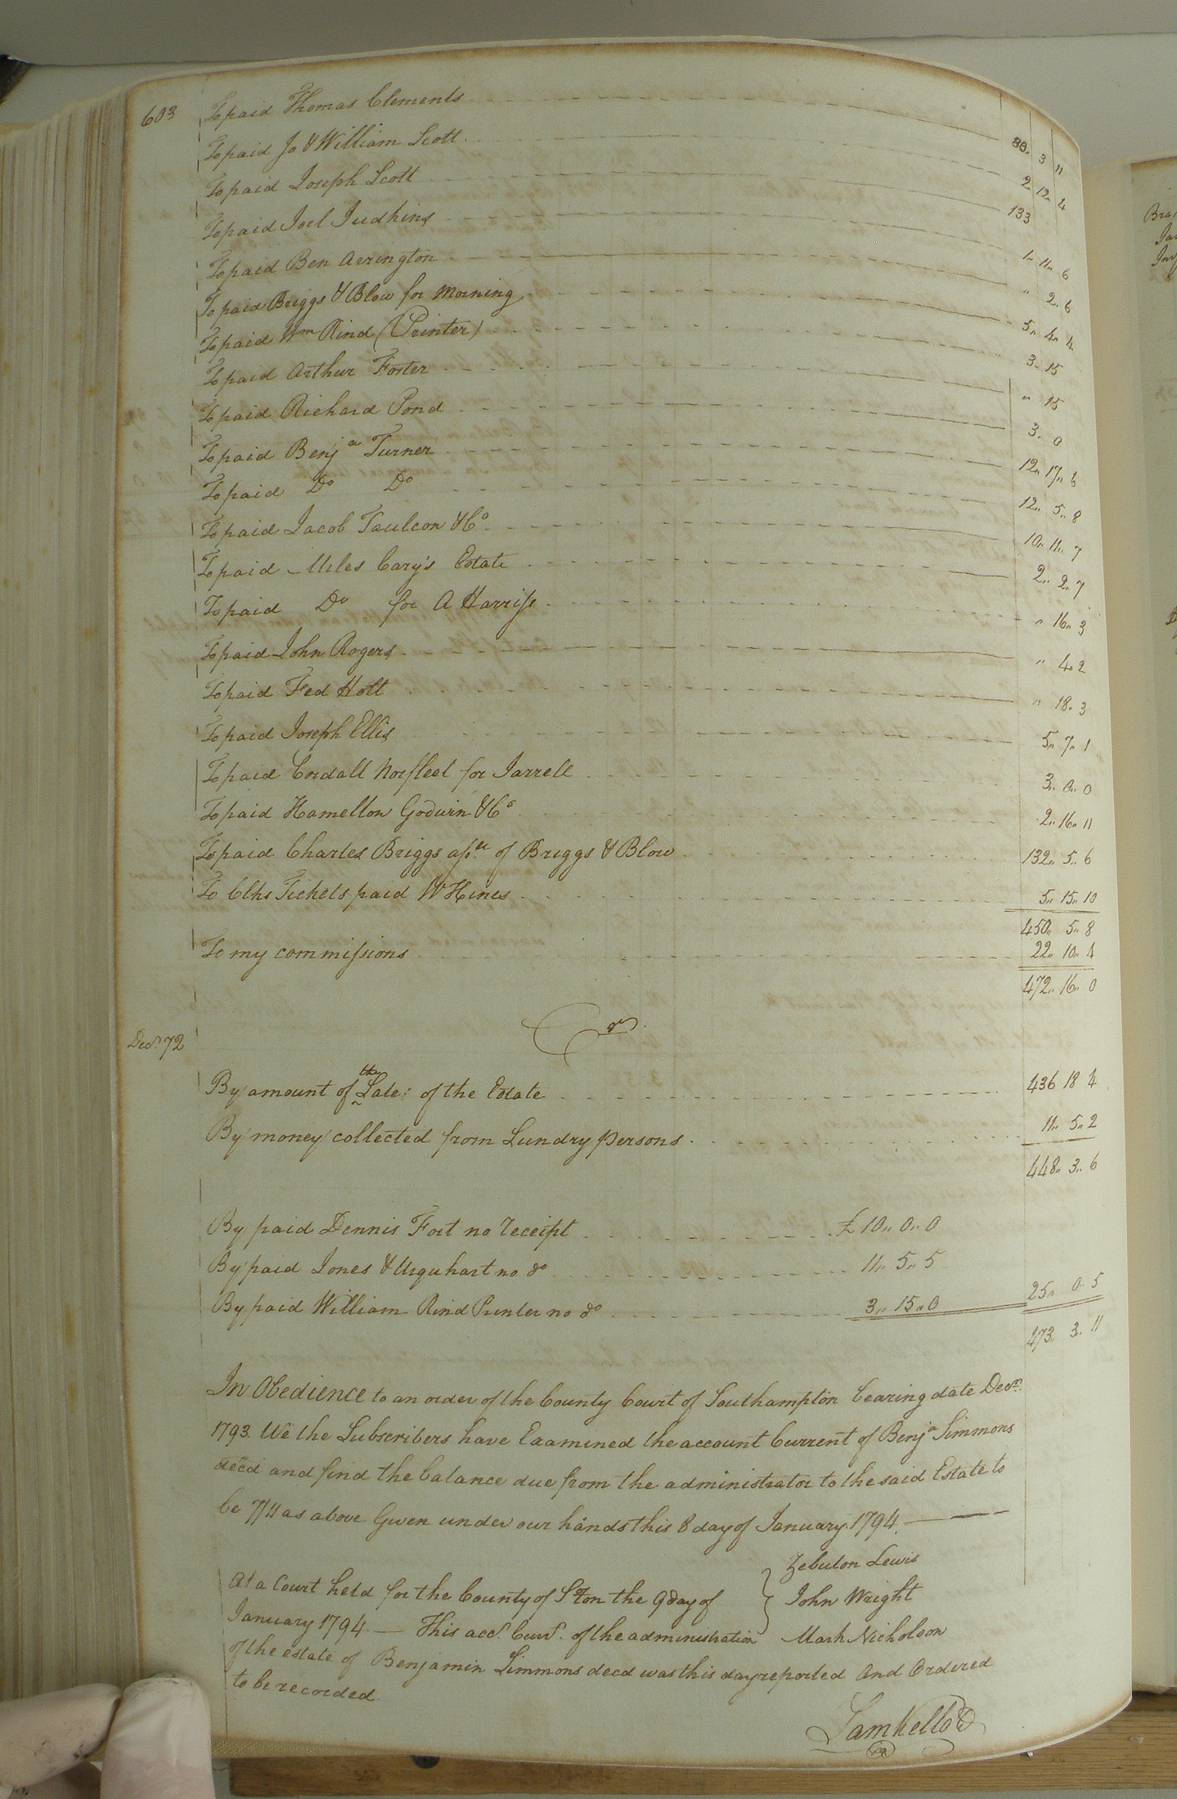 603 To paid Thomas Clements 88.. 3 11
To paid Jo & William Scott 2 12.. 4
To paid Joseph Scott 133
To paid Joel Judkins 1.. 11.. 6
To paid Ben Arrington " 2.. 6
To paid Briggs & Blow for Morning 5.. 4.. 4
To paid Wm Rind (Printer) 3.. 15
To paid Arthur Foster " 15
To paid Richard Pond 3.. 0
To paid Benja Turner 12.. 17.. 6
To paid Do Do 12.. 5.. 8
To paid Jacob Faulcon & Co 10.. 11.. 7
To paid Miles Cary's Estate 2.. 2.. 7
To paid Do for A Harriss " 16.. 3
To paid John Rogers " 4.. 2
To paid Fed Holt " 18.. 3
To paid Joseph Ellis 5.. 7.. 1
To paid Cordall Norfleet for Jarrell 3.. 0.. 0
To paid Hamelton Godwin & Co 2.. 16.. 11
To paid Charles Briggs of Briggs & Blow 132.. 5.. 6
To Clks Tickets paid W Hines 5.. 15.. 10
450.. 5.. 8
To my commissions 22.. 10.. 4
472.. 16.. 0
Cr
Decr 72
By amount of the Sale: of the Estate 436 18 4
By money collected from Sundry persons 11.. 5.. 2
448.. 3.. 6
By paid Dennis Fort no receipt £ 10.. 0.. 0
By paid Jones & Urquhart no do 11.. 5.. 5
By paid William Rind Printer no do 3.. 15.. 0 25.. 0 5
473 3.. 11
In Obedience to an order of the County Court of Southampton bearing date Decr
1793. We the Subscribers have Examined the account Current of Benja Simmons
decd and find the balance due from the administrator to the said Estate to
be 7/11 as above Given under our hands this 8 day of January 1794.
Zebulon Lewis
John Wright
Mark Nicholson
At a Court held for the County of Stton the 9 day of
January 1794 — This acct Curt. of the administration
of the estate of Benjamin Simmons decd was this day reported and Ordered
to be recorded.
Sam Kello